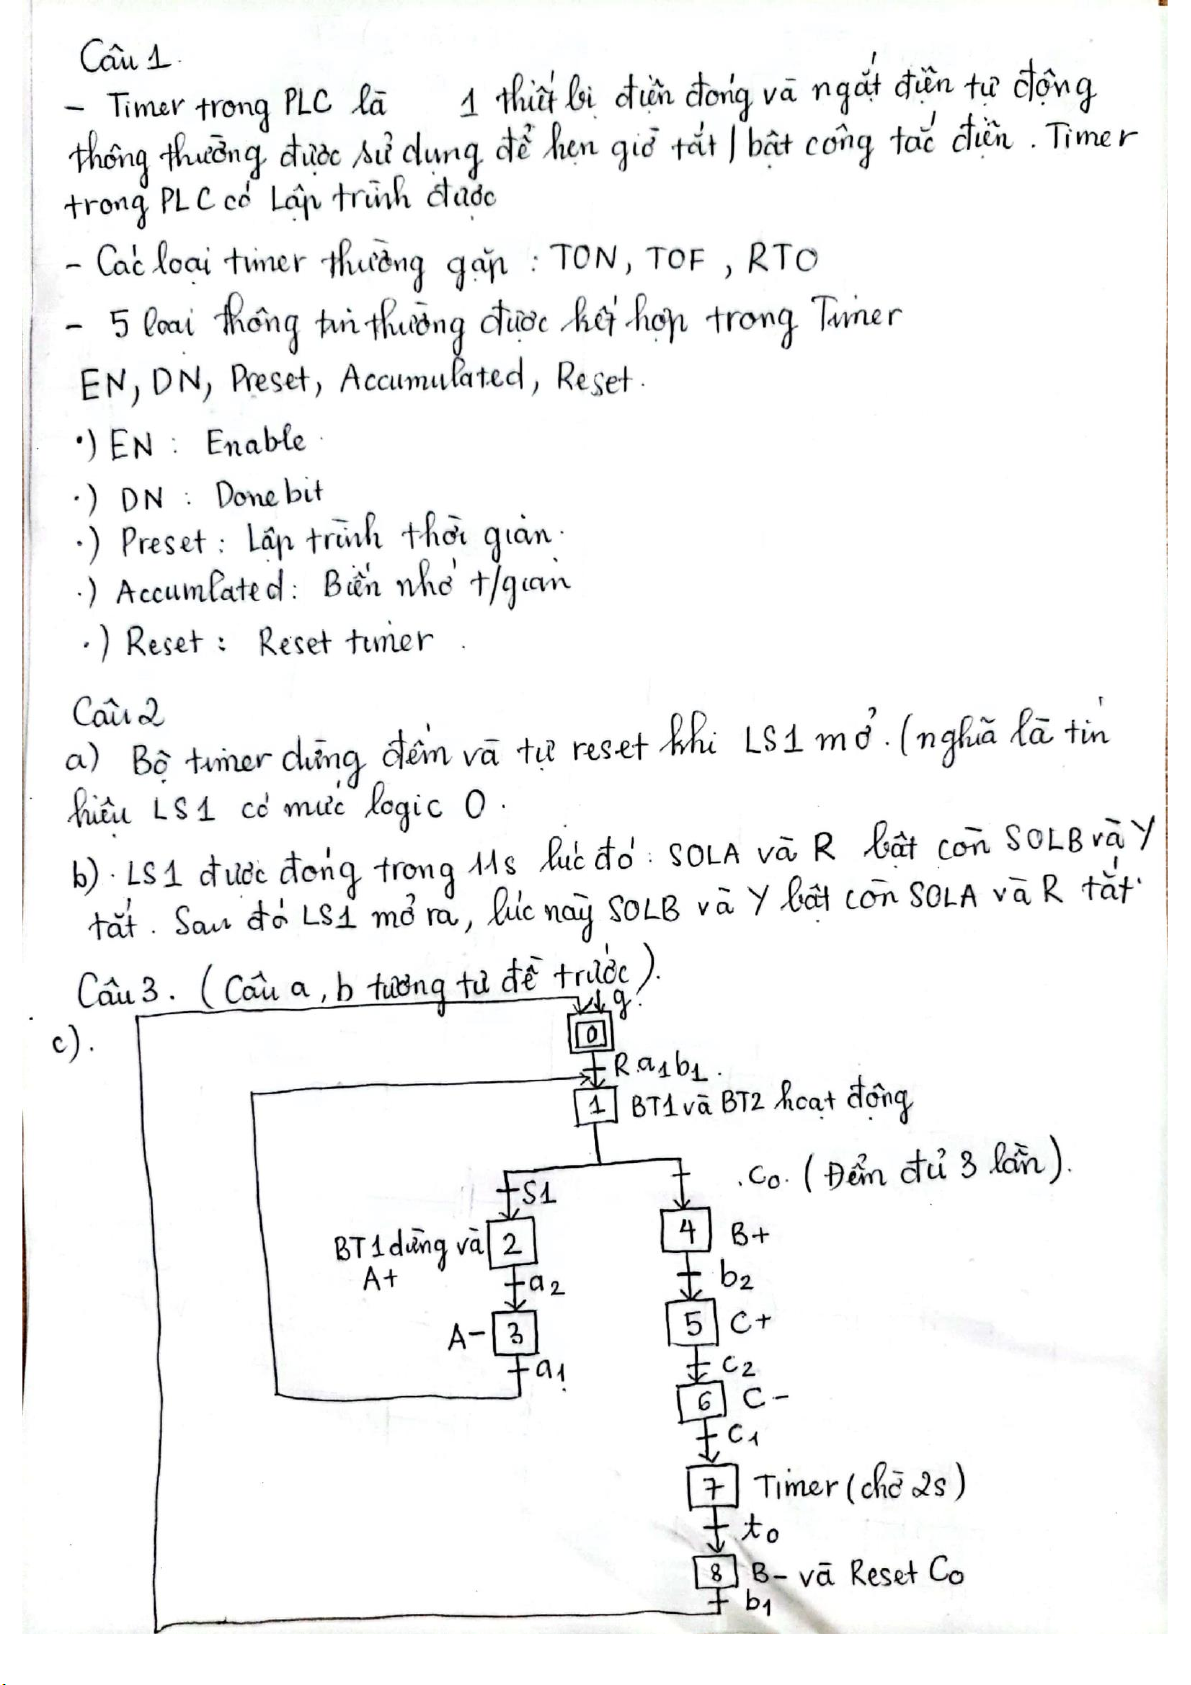 Câu 1.
- Timer trong PLC là 1 thiết bị điện đóng và ngắt điện tự động
thông thường được sử dụng để hẹn giờ tắt / bật công tắc điện. Timer
trong PLC có Lập trình được
- Các loại timer thường gặp : TON, TOF , RTO
- 5 loại thông tin thường được kết hợp trong Timer
EN, DN, Preset, Accumulated, Reset.
•) EN : Enable
·) DN : Done bit
·) Preset : Lập trình thời gian.
·) Accumlated : Biến nhớ t/gian
·) Reset : Reset timer .
Câu 2
a) Bộ timer dừng đếm và tự reset khi LS1 mở. (nghĩa là tín
hiệu LS1 có mức logic 0 .
b). LS1 được đóng trong 11s lúc đó : SOLA và R bật còn SOLB và Y
tắt. Sau đó LS1 mở ra, lúc này SOLB và Y bật còn SOLA và R tắt.
Câu 3. (Câu a, b tương tự đề trước).
c).
g.
0
R a1 b1 .
1 BT1 và BT2 hoạt động
.C0. (Đếm đủ 3 lần).
S1
4 B+
BT1 dừng và 2
A+
b2
a2
5 C+
A- 3
c2
a1
6 C-
C1
7 Timer (chờ 2s)
t0
8 B- và Reset C0
b1